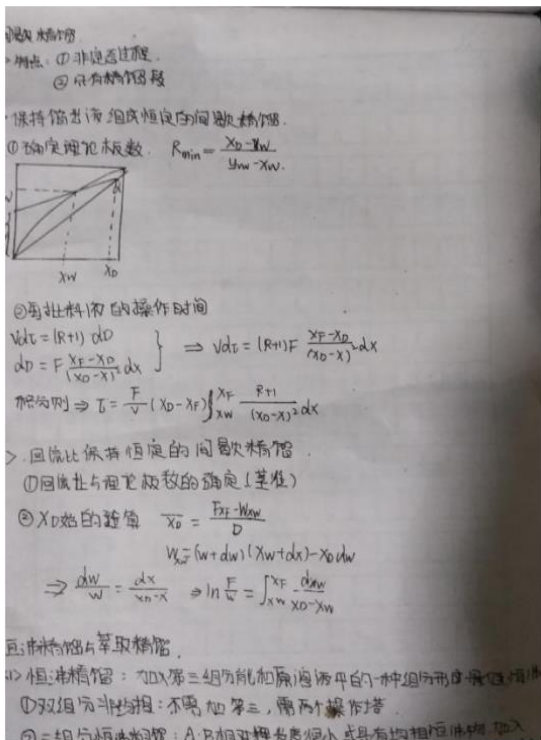 间歇精馏
特点：① 非定态过程.
② 只有精馏段
保持馏出液组成恒定的间歇精馏.
①确定理论板数. Rmin = (xD-yW)/(yW-xW).
xW xD
②每批料液的操作时间
Vdτ = (R+1) dD
dD = F (xF-xD)/(xD-x)² dx } ⇒ Vdτ = (R+1)F (xF-xD)/(xD-x)² dx
积分则 ⇒ τ = F/V (xD-xF) ∫xW xF (R+1)/(xD-x)² dx
>. 回流比保持恒定的间歇精馏.
①回流比与理论板数的确定(基准)
② XD始的 x̄D = (FxF-WxW)/D
(w+dw)(xw+dx)-xD dw
⇒ dw/w = dx/(xD-x) ⇒ ln F/W = ∫xW xF dxw/(xD-xW)
恒沸精馏与萃取精馏.
<1> 恒沸精馏：加入第三组分能和原溶液中的一种组分形成最低恒沸
①双组分非均相：不需加第三，需两个操作塔.
②三组分恒沸精馏：A.B相对挥发度很小或具有均相恒沸物,加入